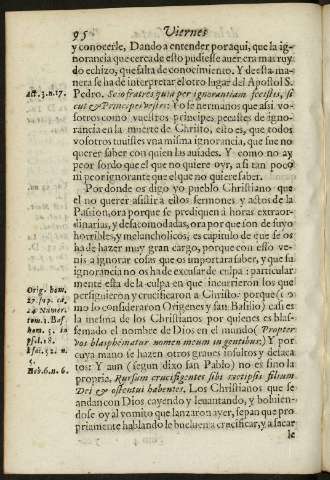 95 Viernes
y conocerle, Dando a entender por aqui, que la ig-
norancia que cerca de esto pudiesse auer era mas ruy-
do echizo, que falta de conocimiento. Y desta ma-
nera se ha de interpretar el otro lugar del Apostol S.
Act. 3. n. 17. Pedro. Scio fratres quia per ignorantiam fecistis, si
cut & Principes vestri: Yo se hermanos que assi vo-
sotros como vuestros principes pecastes de igno-
rancia en la muerte de Christo, esto es, que todos
vosotros tuuistes vna misma ignorancia, que fue no
querer saber con quien las auiades. Y como no ay
peor sordo que el que no quiere oyr, assi tan poco
ni peor ignorante que el que no quiere saber.
Por donde os digo yo pueblo Christiano que
el no querer assistir a estos sermones y actos de la
Passion, ora porque se prediquen à horas extraor-
dinarias, y desacomodadas, ora por que son de suyo
horribles, y melancholicos, es capitulo de que se os
ha de hazer muy gran cargo, porque con esso ve-
nis a ignorar cosas que os importara saber, y que su
ignorancia no os ha de escusar de culpa: particular
mente esta de la culpa en que incurrieron los que
Orig. hom. persiguieron y crucificaron a Christo: porque (co
27. sup. ca. mo lo consideraron Origenes y san Basilio) casi es
24. Numer. la mesma de los Christianos por quienes es blas-
tom. 1. Bas. femado el nombre de Dios en el mundo (Propter
hom. 5. in vos blasphematur nomen meum in gentibus:) Y por
psal. 28. cuya mano se hazen otros graues insultos y delica
Isai. 52. n. tos: Y aun (segun dixo san Pablo) no es sino la
5. propria. Rursum crucifigentes sibi metipsis filium
Heb. 6. n. 6. Dei & ostentui habentes. Los Christianos que se
andan con Dios cayendo y leuantando, y boluien-
dose oy al vomito que lanzaron ayer, sepan que pro
priamente hablando le bueluen a crucificar, y a sacar
le